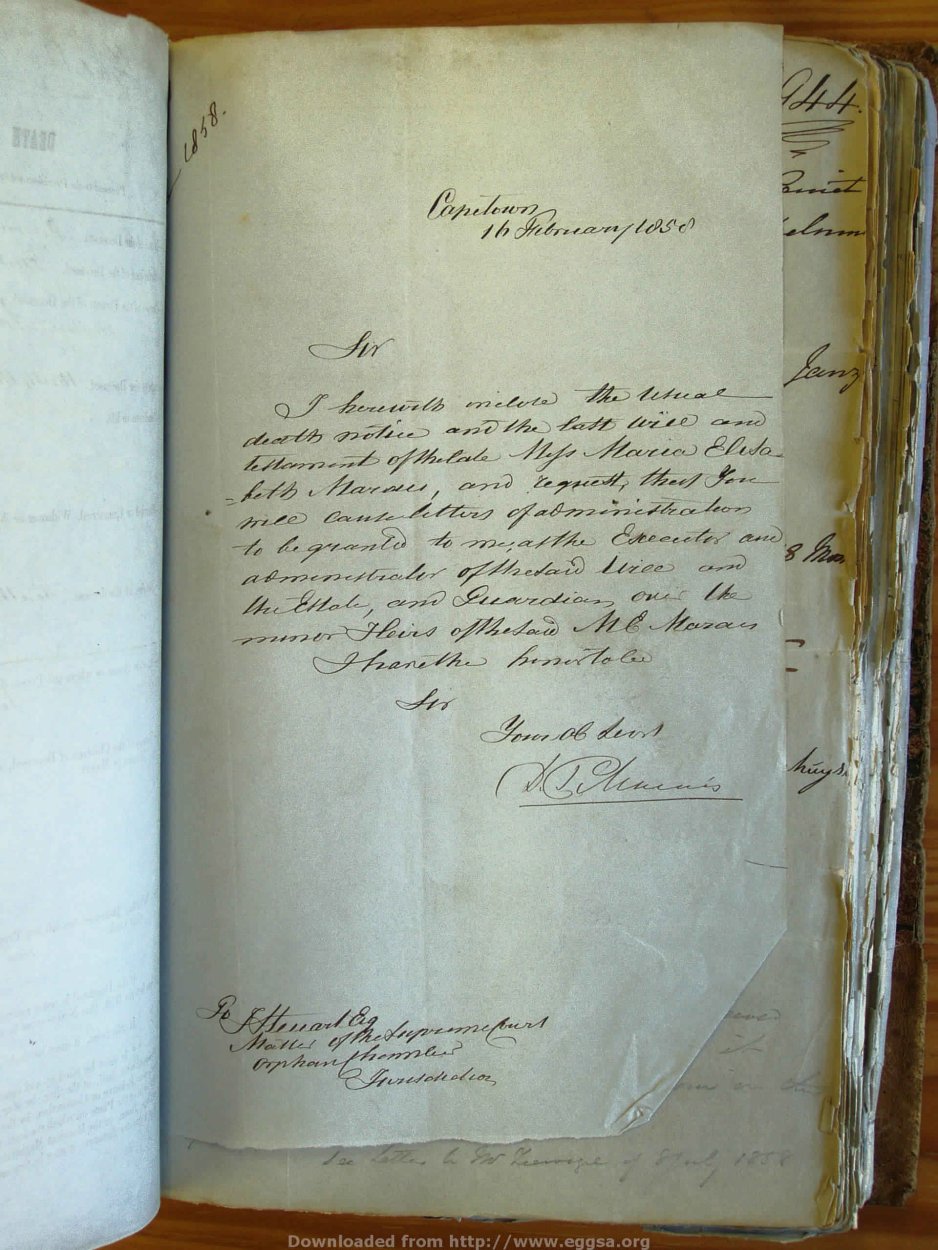 1858.
Capetown
16 February 1858
Sir
I herewith inclose the Usual
death notice and the last will and
testament of the late Miss Maria Elisa-
=beth Marais, and request, that You
will cause letters of administration
to be granted to me, as the Executor and
administrator of the said Will and
the Estate, and Guardian over the
minor Heirs of the said M E Marais
I have the honor to be
Sir
Your Ob Servt
To
Steuart Esq
Master of the Supreme Court
Orphan Chamber
Jurisdiction
944.
Janz
8
huys
DEATH
see letter to Mr of 8 July 1858
Downloaded from http://www.eggsa.org